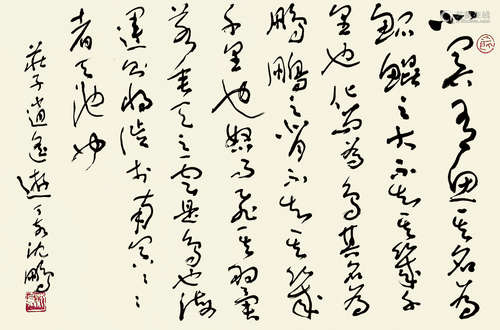 北冥有魚其名為
鯤鯤之大不知其幾千
里也化而為鳥其名為
鵬鵬之背不知其幾
千里也怒而飛其翼
若垂天之雲是鳥也海
運則將徙於南冥〻〻
者天池也
莊子逍遥遊丁亥沈鵬